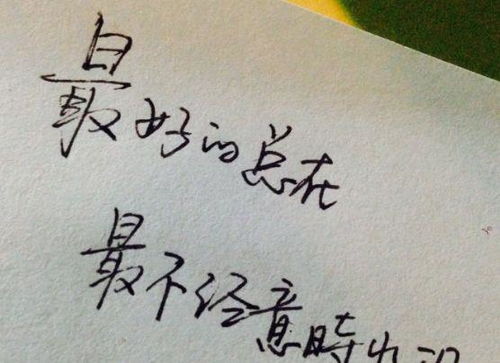 最好的总在
最不经意時出